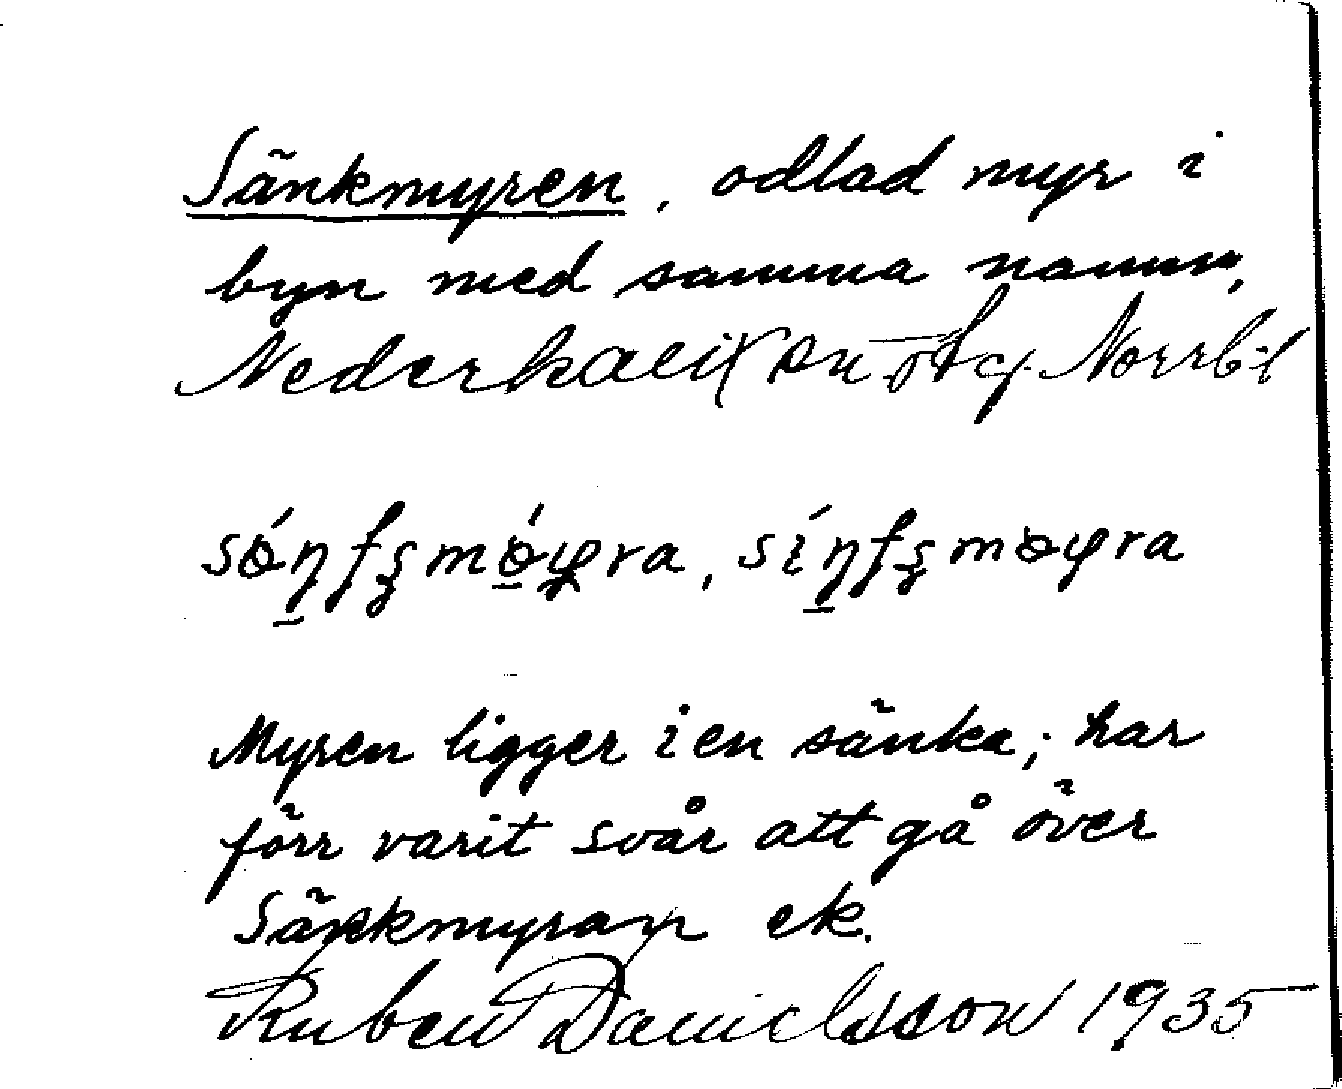 Sänkmyren, odlad myr i
byn med samma namn,
Nederkalix Norrb-l
Myren ligger i en sänka; har
förr varit svår att gå över
Sänkmyran ek.
Ruben Danielsson 1935